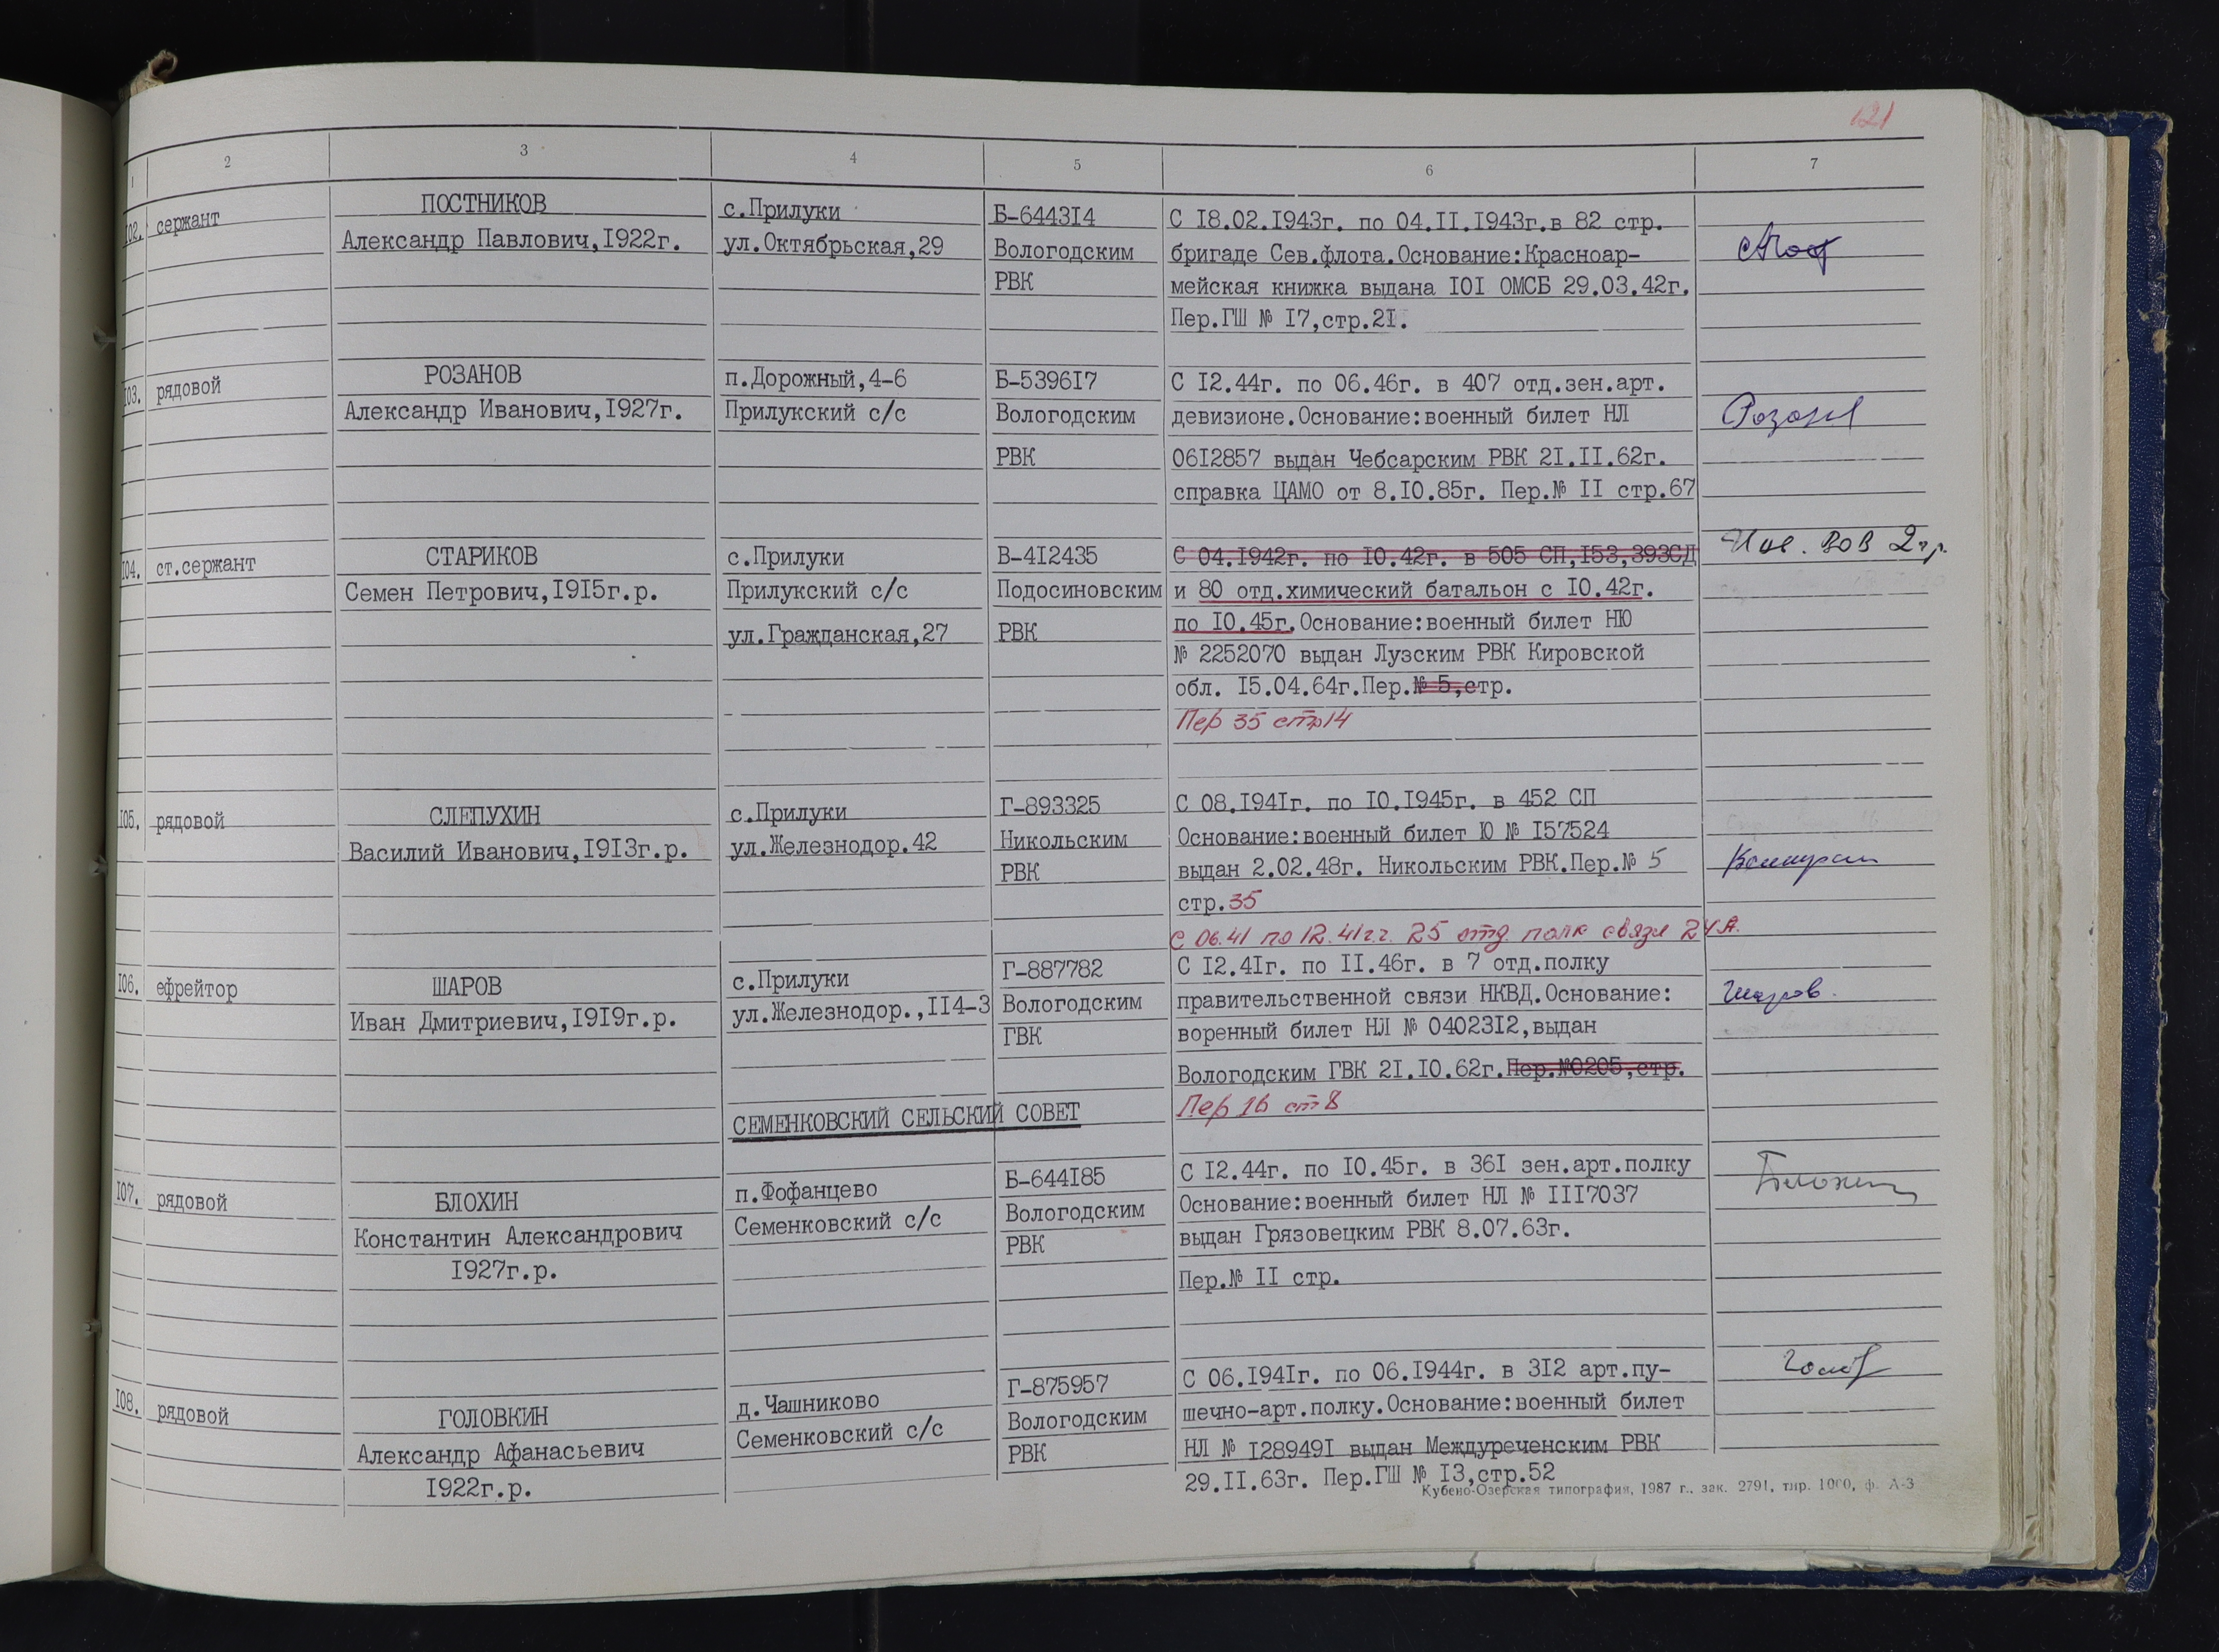 121
1 2 3 4 5 6 7
102. сержант
ПОСТНИКОВ
Александр Павлович,1922г.
с.Прилуки
ул.Октябрьская,29
Б-644314
Вологодским
РВК
С 18.02.1943г. по 04.11.1943г.в 82 стр.
бригаде Сев.флота.Основание:Красноар-
мейская книжка выдана 101 ОМСБ 29.03.42г.
Пер.ГШ № 17,стр.21.
103. рядовой
РОЗАНОВ
Александр Иванович,1927г.
п.Дорожный,4-6
Прилукский с/с
Б-539617
Вологодским
РВК
С 12.44г. по 06.46г. в 407 отд.зен.арт.
девизионе.Основание:военный билет НЛ
0612857 выдан Чебсарским РВК 21.11.62г.
справка ЦАМО от 8.10.85г. Пер.№ 11 стр.67
Розанов
104. ст.сержант
СТАРИКОВ
Семен Петрович,1915г.р.
с.Прилуки
Прилукский с/с
ул.Гражданская,27
В-412435
Подосиновским
РВК
С 04.1942г. по 10.42г. в 505 СП,153,393СД
и 80 отд.химический батальон с 10.42г.
по 10.45г.Основание:военный билет НЮ
№ 2252070 выдан Лузским РВК Кировской
обл. 15.04.64г.Пер.№ 5,стр.
Пер 35 стр14
Инв. ВОВ 2 гр.
105. рядовой
СЛЕПУХИН
Василий Иванович,1913г.р.
с.Прилуки
ул.Железнодор.42
Г-893325
Никольским
РВК
С 08.1941г. по 10.1945г. в 452 СП
Основание:военный билет Ю № 157524
выдан 2.02.48г. Никольским РВК.Пер.№ 5
стр.35
С 06.41 по 12.41г.г. 25 отд. полк связи 24А.
106. ефрейтор
ШАРОВ
Иван Дмитриевич,1919г.р.
с.Прилуки
ул.Железнодор.,114-3
Г-887782
Вологодским
ГВК
С 12.41г. по 11.46г. в 7 отд.полку
правительственной связи НКВД.Основание:
воренный билет НЛ № 0402312,выдан
Вологодским ГВК 21.10.62г.Пер.№0205,стр.
Пер 16 ст 8
Шаров.
СЕМЕНКОВСКИЙ СЕЛЬСКИЙ СОВЕТ
107. рядовой
БЛОХИН
Константин Александрович
1927г.р.
п.Фофанцево
Семенковский с/с
Б-644185
Вологодским
РВК
С 12.44г. по 10.45г. в 361 зен.арт.полку
Основание:военный билет НЛ № 1117037
выдан Грязовецким РВК 8.07.63г.
Пер.№ 11 стр.
108. рядовой
ГОЛОВКИН
Александр Афанасьевич
1922г.р.
д.Чашниково
Семенковский с/с
Г-875957
Вологодским
РВК
С 06.1941г. по 06.1944г. в 312 арт.пу-
шечно-арт.полку.Основание:военный билет
НЛ № 1289491 выдан Междуреченским РВК
29.11.63г. Пер.ГШ № 13,стр.52
Кубено-Озерская типография, 1987 г., зак. 2791, тир. 1000, ф. А-3